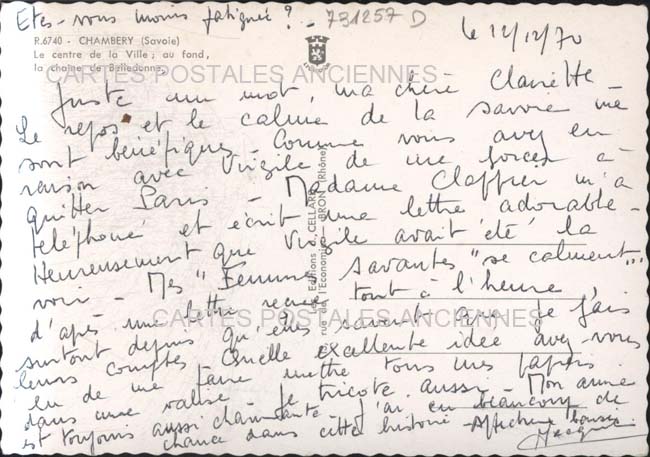 Etes-vous moins fatiguée ? - 731257 D
R.6740 - CHAMBERY (Savoie)
Le centre de la Ville ; au fond,
la chaîne de Belledonne.
le 12/12/70
CARTES POSTALES ANCIENNES
Juste un mot, ma chère Clairette -
Le repos et le calme de la Savoie me
sont bénéfiques - Comme vous avez eu
raison avec Virgile de me forcer à
quitter Paris - Madame Claffier m'a
téléphoné et écrit une lettre adorable -
Heureusement que Virgile avait été la
voir - Mes "Femmes savantes" se calment...
d'après une lettre reçue tout à l'heure,
surtout depuis qu'elles savent que je fais
leurs comptes. Quelle excellente idée avez-vous
eu de me faire mettre tous mes papiers
dans une valise - Je tricote aussi - Mon
est toujours aussi charmante - J'ai eu beaucoup de
chance dans cette histoire - Affectueux baisers
Jacquie
Les Editions J. CELLARD
rue de l'Economie - BRON (Rhône)
CARTES POSTALES ANCIENNES